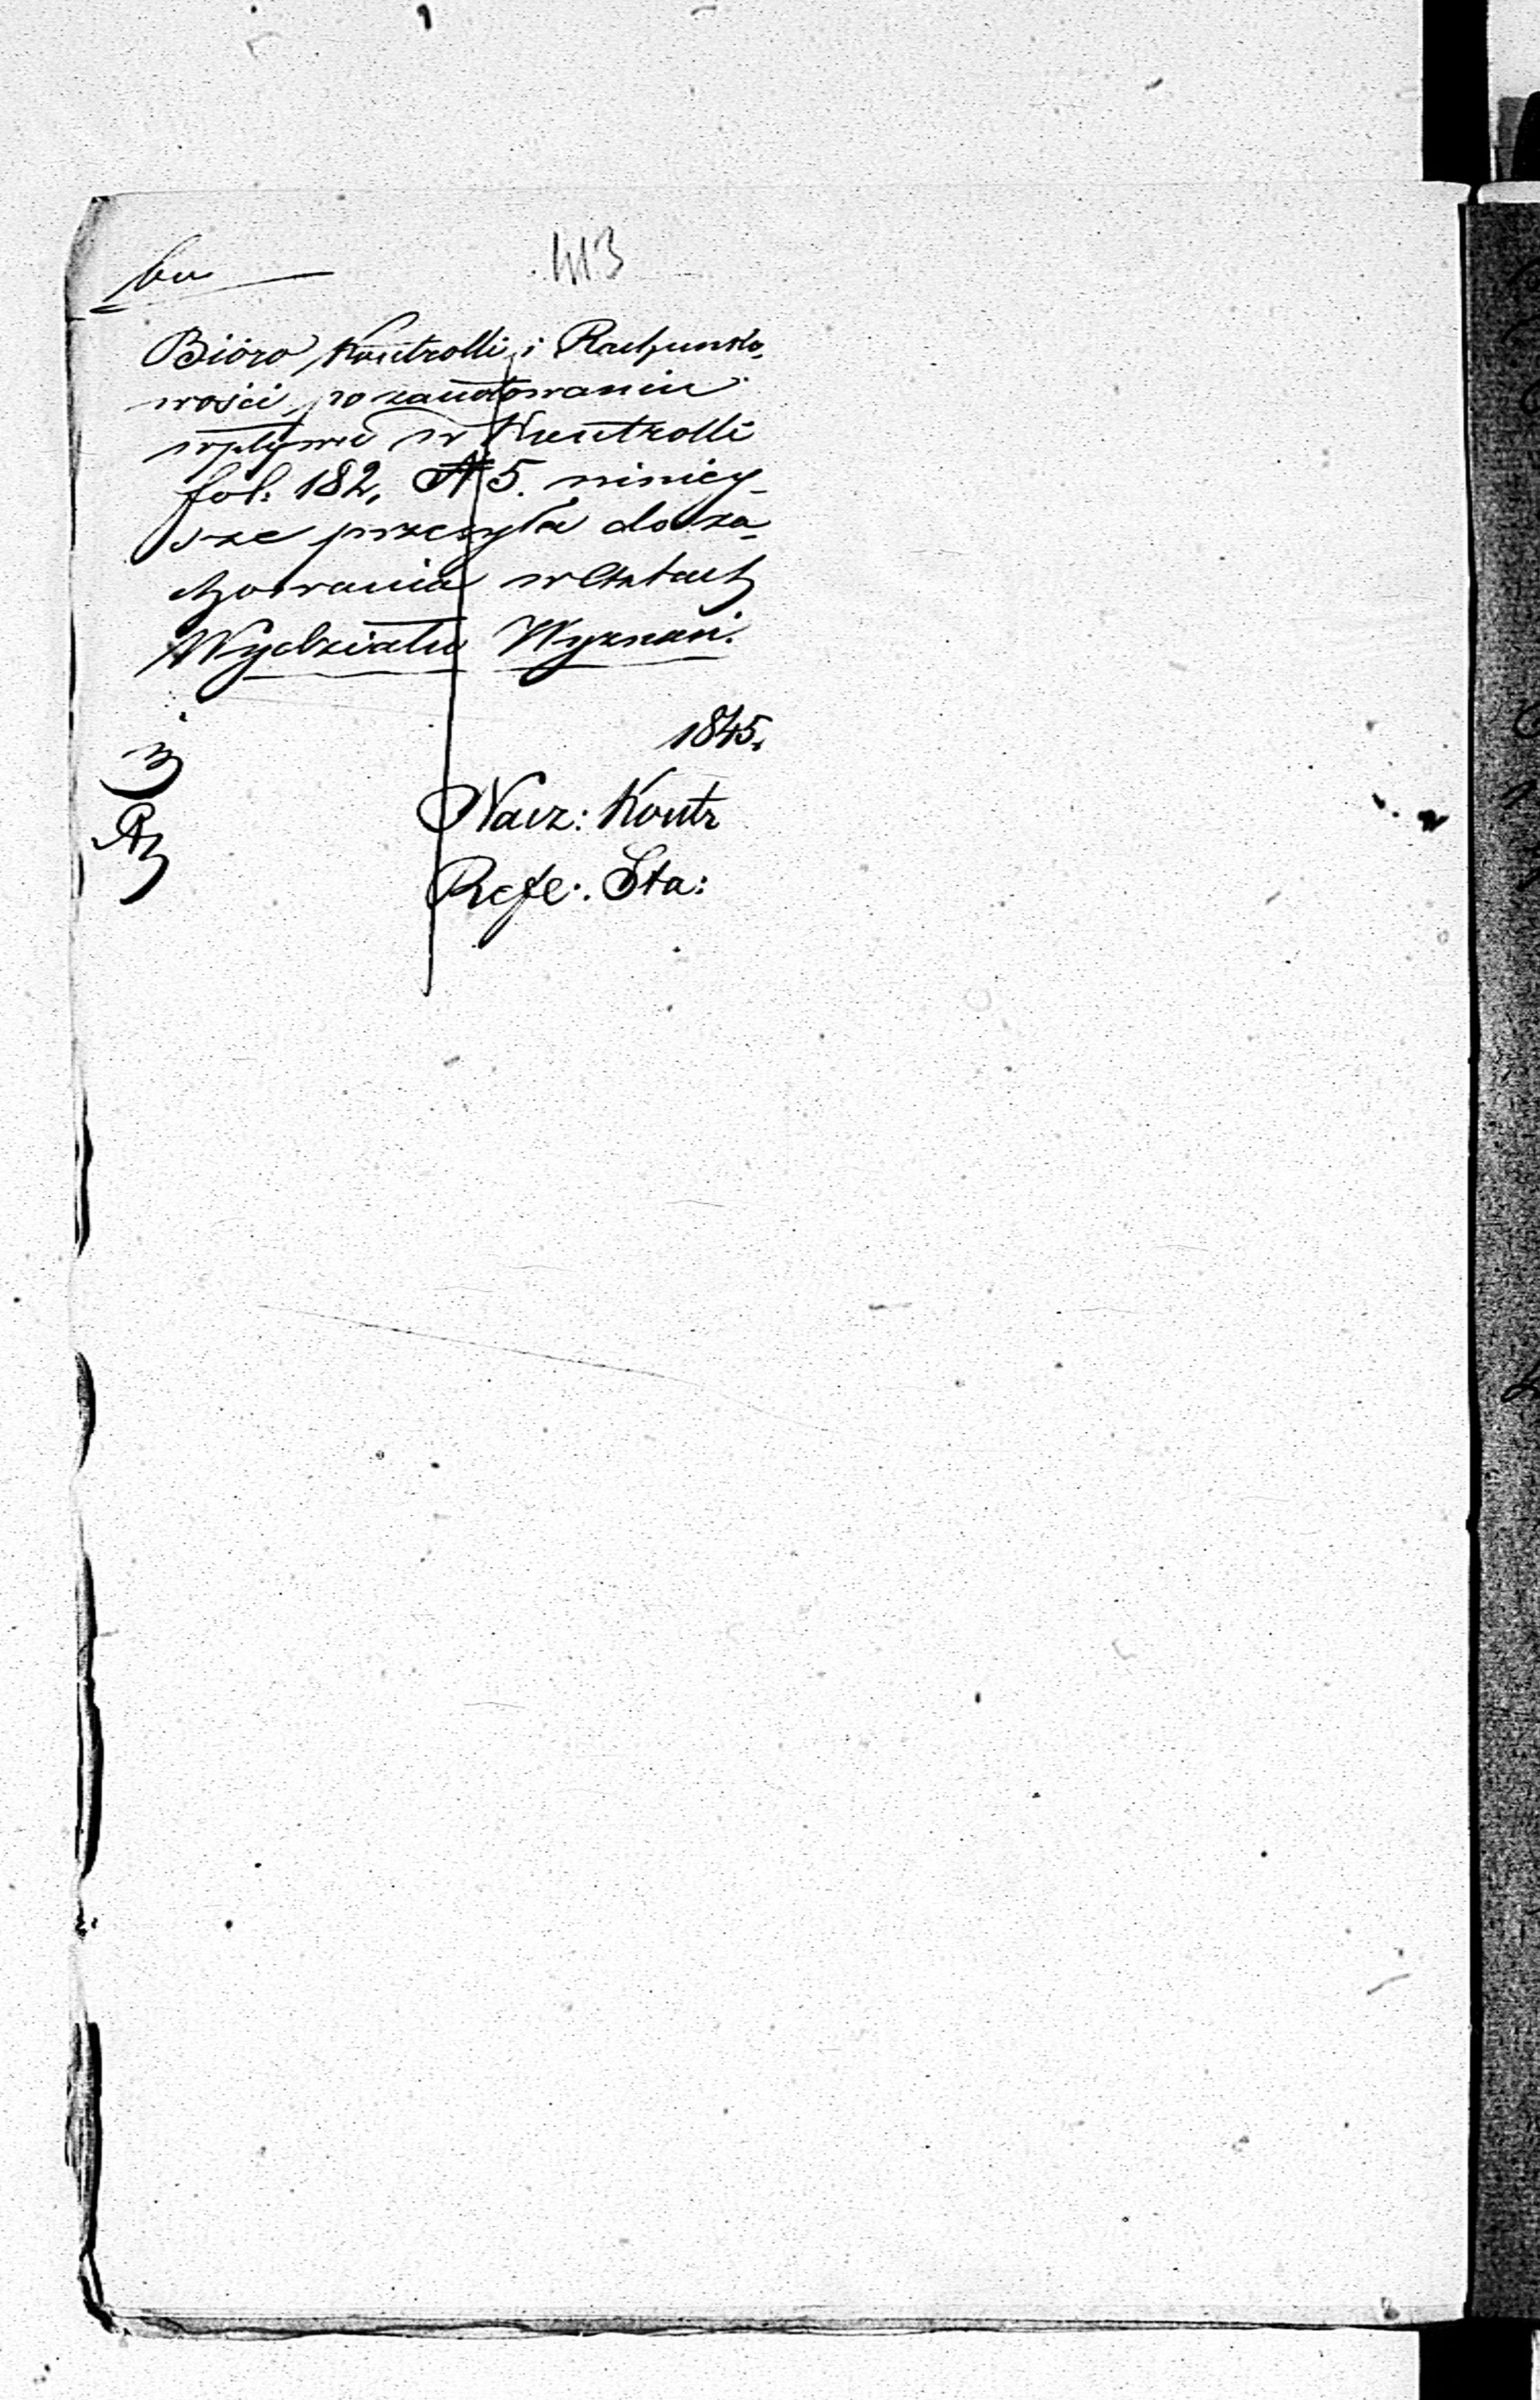 413
Bióro Kontrolli i Rachunko-
wości, po zanotowaniu
wpływu w Kontrolli
fol: 182, N 5. niniey-
sze przesyła do za-
chowania w Aktach
Wydziału Wyznań.
1845.
Nacz: Kontr
Refe: Sta: